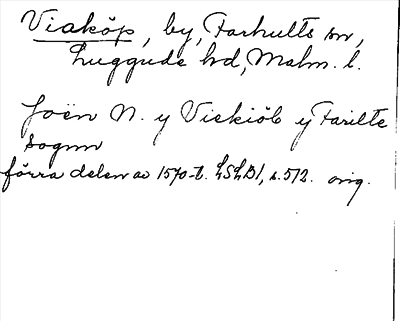 Viaköp, by, Farhults sn,
Luggude hd, Malm. l.
Joën N. y Viekiöb y Farilte
sognn
förra delen av 1570-t. LSLB1, s. 572. orig.